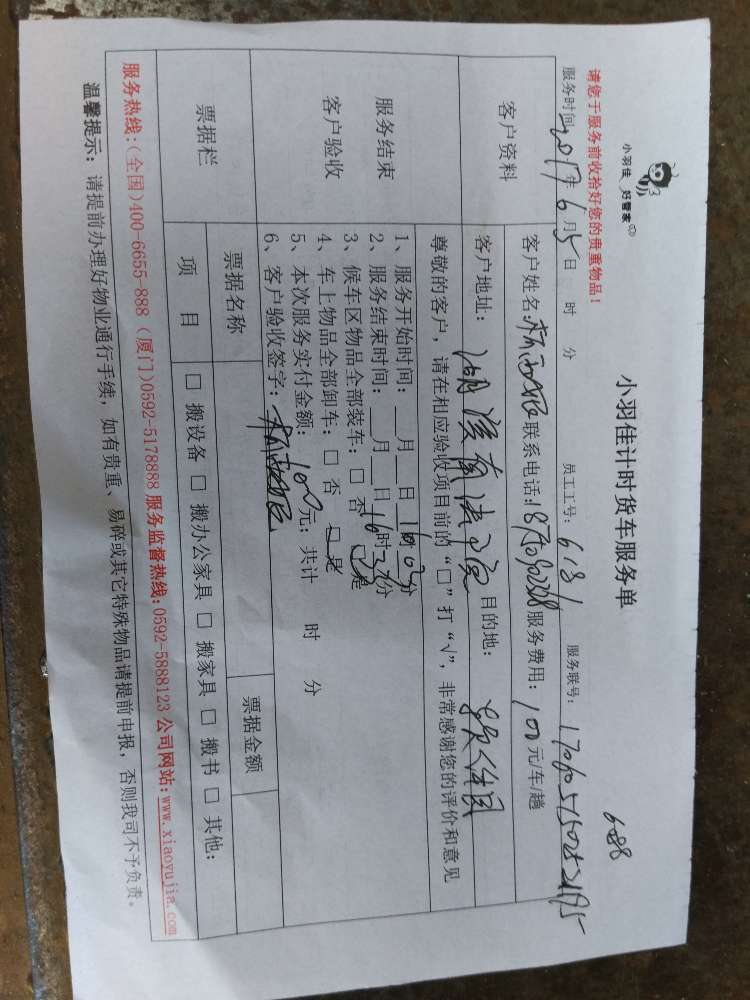 小羽佳 好管家
小羽佳计时货车服务单
6088
请您于服务前收拾好您的贵重物品!
服务时间:2017年6月5日 时 分 员工工号:6181 服务联号:
客户资料
客户姓名: 联系电话: 服务费用:100元/车/趟
客户地址:湖滨南 目的地:
服务结束
客户验收
尊敬的客户,请在相应验收项目前的“□”打“√”,非常感谢您的评价和意见
1、服务开始时间:__月__日 时 分
2、服务结束时间:__月__日16时 分
3、候车区物品全部装车:□ 否 □ 是
4、车上物品全部卸车:□ 否 □ 是
5、本次服务实付金额:100元;共计 时 分
6、客户验收签字:
票据栏
票据名称 票据金额
项 目 □ 搬设备 □ 搬办公家具 □ 搬家具 □ 搬书 □ 其他:
服务热线:(全国)400-6655-888 (厦门)0592-5178888 服务监督热线:0592-5888123 公司网站:www.xiaoyujia.com
温馨提示:请提前办理好物业通行手续,如有贵重、易碎或其它特殊物品请提前申报,否则我司不予负责。